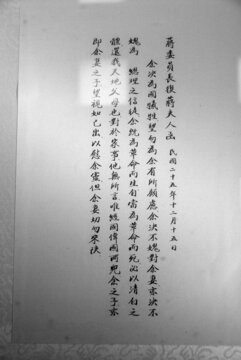 蔣委員長復蔣夫人函 民國二十五年十二月十五日
余決為國犧牲望勿為余有所顧慮余決不愧對余妻亦決不
愧為 總理之信徒余既為革命而生自當為革命而死必以清白之
體還我天地父母也對於家事他無所言唯經國偉國兩兒余之子亦
即余妻之子望視如己出以慰余靈但余妻切勿來陝